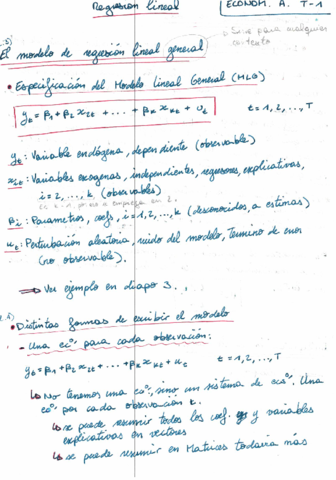 Regresión lineal
ECONOM. A. T-1
→ Sirve para cualquier
contexto
El modelo de regresión lineal general
• Especificación del Modelo lineal General (MLG)
y_t = β_1 + β_2 x_2t + .... + β_k x_kt + u_t t = 1, 2, ..., T
y_t: Variable endógena, dependiente (observable)
x_it: Variables exogenas, independientes, regresores, explicativas,
i = 2, ..., k (observables)
β_i: Parametros, coefs, i = 1, 2, ..., k (desconocidos, a estimar)
u_t: Perturbación aleatoria, ruido del modelo, Termino de error
(no observable).
⇒ Ver ejemplo en diapo 3.
• Distintas formas de escribir el modelo
- Una ec^o para cada observación:
y_t = β_1 + β_2 x_2t + .... + β_k x_kt + u_t t = 1, 2, ..., T
↳ No tenemos una ec^o, sino un sistema de ecs^o. Una
ec^o por cada observación t.
↳ se puede resumir todos los coef. y variables
explicativas en vectores
↳ se puede resumir en Matrices todavia más